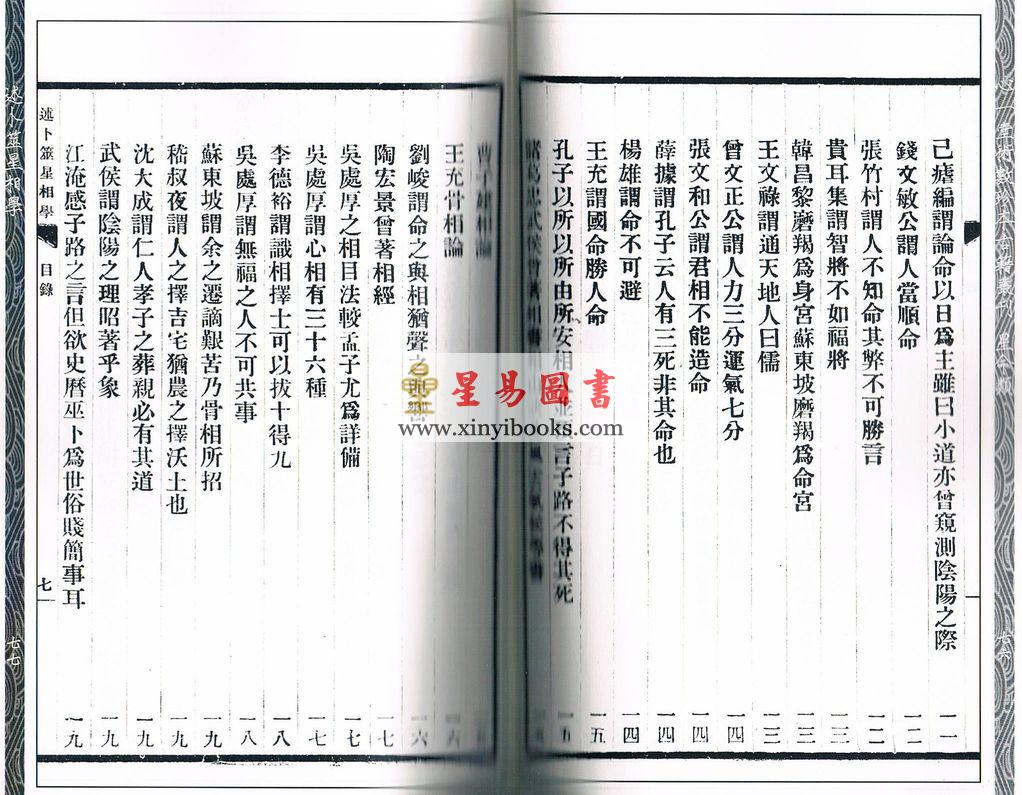 己瘧編謂論命以日爲主雖曰小道亦曾窺測陰陽之際 一一
錢文敏公謂人當順命 一二
張竹村謂人不知命其弊不可勝言 一二
貴耳集謂智將不如福將 一三
韓昌黎磨羯爲身宮蘇東坡磨羯爲命宮 一三
王文祿謂通天地人曰儒 一三
曾文正公謂人力三分運氣七分 一四
張文和公謂君相不能造命 一四
薛據謂孔子云人有三死非其命也 一四
楊雄謂命不可避 一四
王充謂國命勝人命 一五
孔子以所以所由所安相人 言子路不得其死 一五
諸葛忠武侯曾著相書
曹子建相論
王充骨相論 一六
劉峻謂命之與相猶聲之與響 一六
陶宏景曾著相經 一七
吳處厚之相目法較孟子尤爲詳備 一七
吳處厚謂心相有三十六種 一七
李德裕謂識相擇士可以拔十得九 一八
吳處厚謂無福之人不可共事 一八
蘇東坡謂余之遷謫艱苦乃骨相所招 一九
嵇叔夜謂人之擇吉宅猶農之擇沃土也 一九
沈大成謂仁人孝子之葬親必有其道 一九
武侯謂陰陽之理昭著乎象 一九
江淹感子路之言但欲史曆巫卜爲世俗賤簡事耳 一九
述卜筮星相學 目錄 七
述卜筮星相學
七七
七六
星易圖書
www.xinyibooks.com